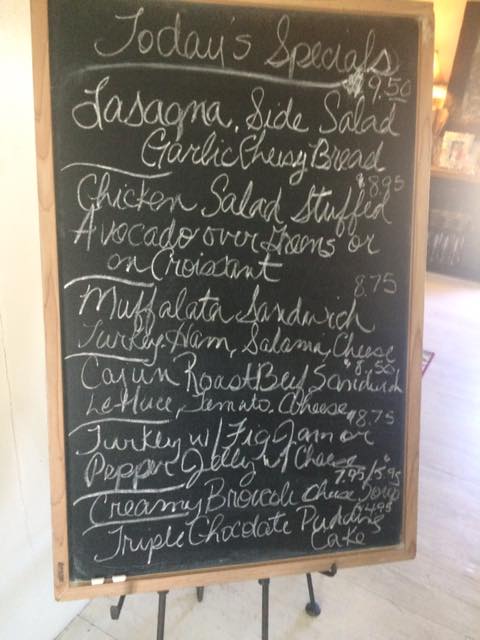 Today's Specials
9.50
Lasagna, Side Salad
Garlic Cheesy Bread
$8.95
Chicken Salad Stuffed
Avocado over Greens or
on Croissant
8.75
Muffalata Sandwich
Turkey, Ham, Salami, Cheese
$8.50
Cajun Roast Beef Sandwich
Lettuce, Tomato, Cheese
$8.75
Turkey w/ Fig Jam or
Pepper Jelly w/ Cheese
7.95/5.95
Creamy Broccoli Cheese Soup
$4.95
Triple Chocolate Pudding
Cake